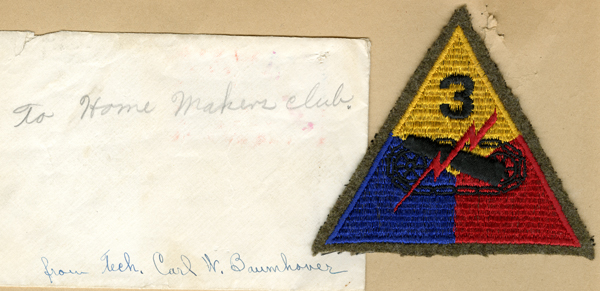 To Home Makers club.
3
from Tech. Carl W. Baumhover